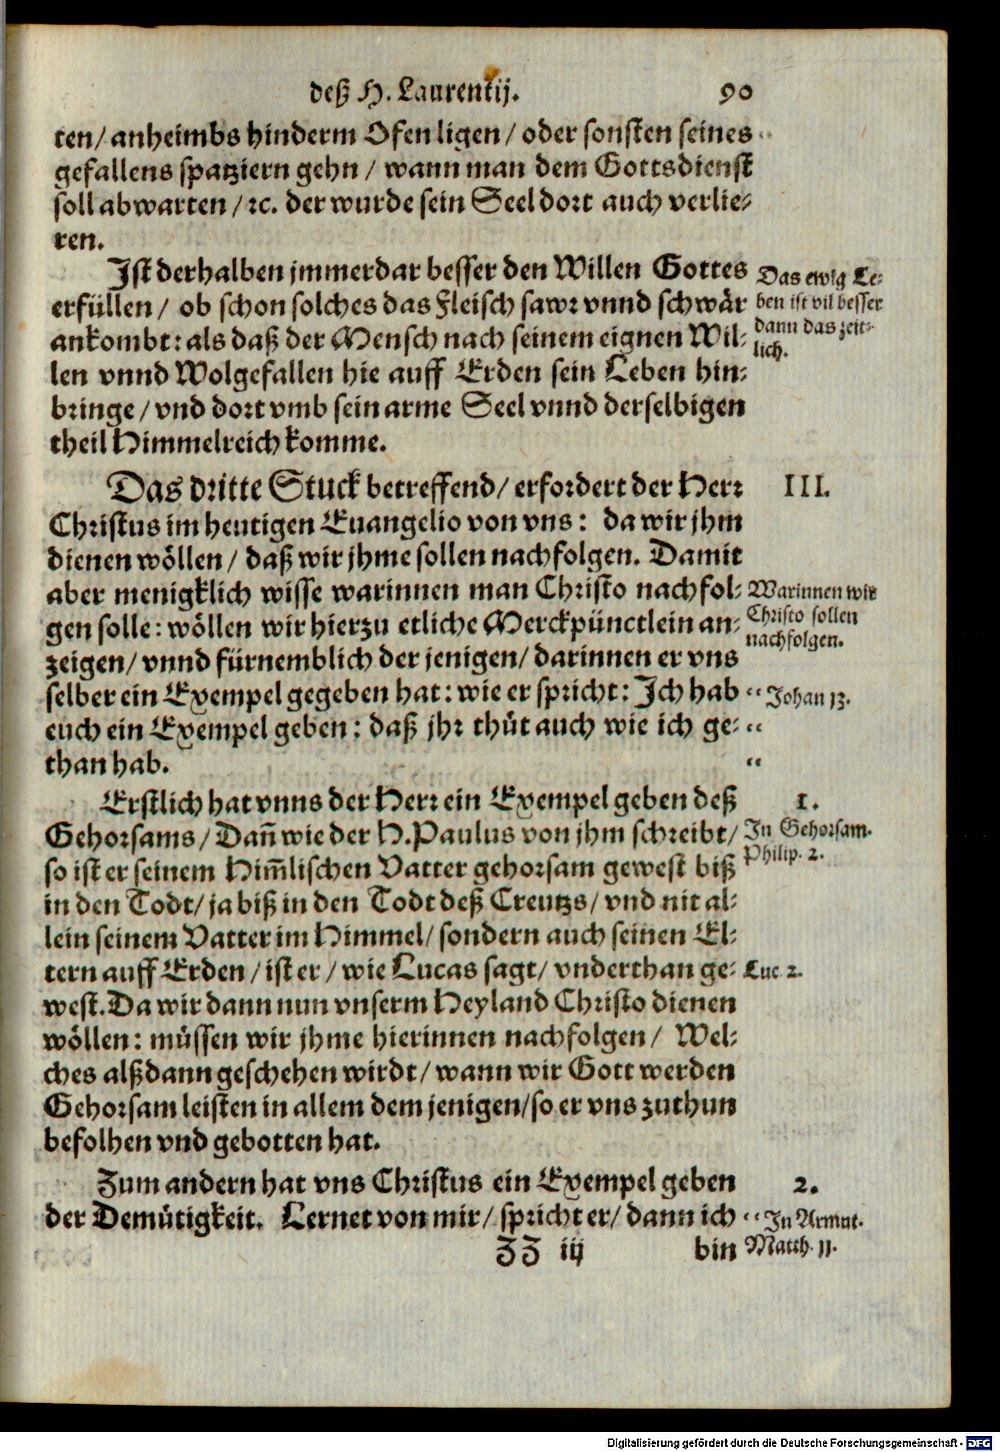 deß H. Laurentij. 90
ten/ anheimbs hinderm Ofen ligen/ oder sonsten seines
gefallens spatziern gehn / wann man dem Gottsdienst
soll abwarten /ꝛc. der wurde sein Seel dort auch verlie-
ren.
Ist derhalben jmmerdar besser den Willen Gottes
erfüllen/ ob schon solches das Fleisch sawr vnnd schwär
ankombt: als daß der Mensch nach seinem eignen Wil-
len vnnd Wolgefallen hie auff Erden sein Leben hin-
bringe / vnd dort vmb sein arme Seel vnnd derselbigen
theil Himmelreich komme.
Das ewig Le-
ben ist vil besser
dann das zeit-
lich.
Das dritte Stuck betreffend/ erfordert der Herr
III.
Christus im heutigen Euangelio von vns: da wir jhm
dienen wöllen / daß wir jhme sollen nachfolgen. Damit
aber menigklich wisse warinnen man Christo nachfol-
gen solle: wöllen wir hierzu etliche Merckpünctlein an-
zeigen/ vnnd fürnemblich der jenigen/ darinnen er vns
selber ein Exempel gegeben hat: wie er spricht: Ich hab
euch ein Exempel geben: daß jhr thüt auch wie ich ge-
than hab.
Warinnen wir
Christo sollen
nachfolgen.
“ Johan 13.
“
“
Erstlich hat vnns der Herr ein Exempel geben deß
Gehorsams/ Dañ wie der H. Paulus von jhm schreibt/
so ist er seinem Him̃lischen Vatter gehorsam gewest biß
in den Todt/ ja biß in den Todt deß Creutzs/ vnd nit al-
lein seinem Vatter im Himmel/ sondern auch seinen El-
tern auff Erden / ist er / wie Lucas sagt/ vnderthan ge-
west. Da wir dann nun vnserm Heyland Christo dienen
wöllen: müssen wir jhme hierinnen nachfolgen/ Wel-
ches alßdann geschehen wirdt/ wann wir Gott werden
Gehorsam leisten in allem dem jenigen/ so er vns zuthun
befolhen vnd gebotten hat.
1.
In Gehorsam.
Philip. 2.
Luc. 2.
Zum andern hat vns Christus ein Exempel geben
der Demütigkeit. Lernet von mir/ spricht er/ dann ich
2.
“ In Armut.
Matth. 11.
ZZ iij bin
Digitalisierung gefördert durch die Deutsche Forschungsgemeinschaft - DFG